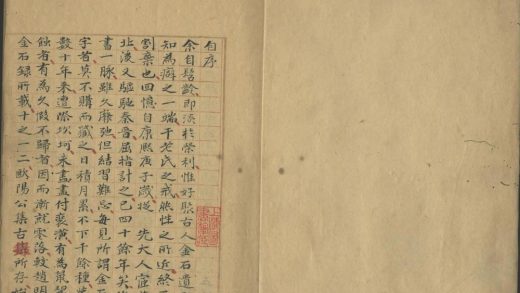 自序
余自髫齡即淡於榮利性好聚古人金石遺
知為癖之一端干老氏之戒然性之所近終
割棄也回憶自康熙庚子歲從 先大人宦
北後又驅馳秦晉屈指計之已四十餘年矣
書一脉雖久廢弛但結習難忘每見所謂金石
字者莫不購而藏之日積月累不下千餘種
數十年來遭際坎坷未盡付裝潢有為
蝕者有為久假不歸者因而漸就零落較趙明
金石錄所載十之一二歐陽公集古錄所存